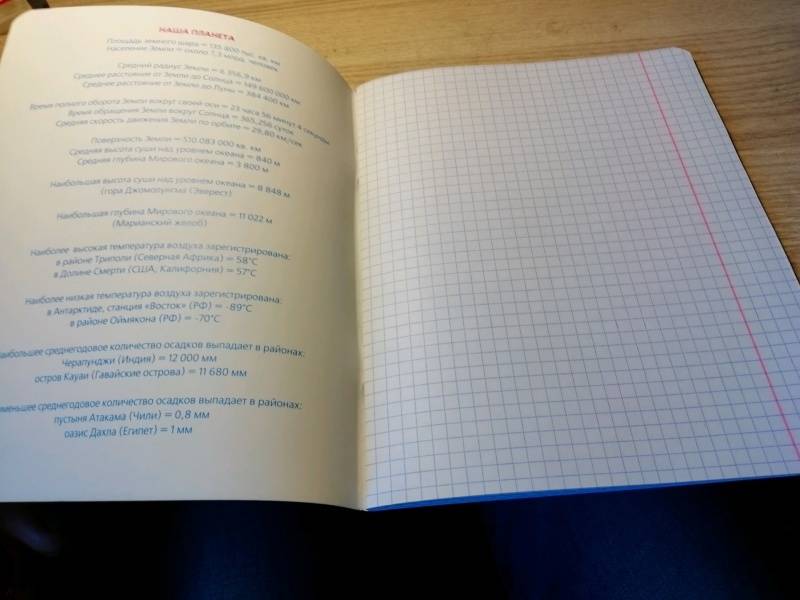 НАША ПЛАНЕТА
Площадь земного шара = 135 800 тыс. кв. км
Население Земли = около 7,3 млрд. человек
Средний радиус Земли = 6 356,9 км
Среднее расстояние от Земли до Солнца = 149 600 000 км
Среднее расстояние от Земли до Луны = 384 400 км
Время полного оборота Земли вокруг своей оси = 23 часа 56 минут 4 секунды
Время обращения Земли вокруг Солнца = 365,256 суток
Средняя скорость движения Земли по орбите = 29,80 км/сек
Поверхность Земли = 510 083 000 кв. км
Средняя высота суши над уровнем океана = 840 м
Средняя глубина Мирового океана = 3 800 м
Наибольшая высота суши над уровнем океана = 8 848 м
(гора Джомолунгма (Эверест)
Наибольшая глубина Мирового океана = 11 022 м
(Марианский желоб)
Наиболее высокая температура воздуха зарегистрирована:
в районе Триполи (Северная Африка) = 58°C
в Долине Смерти (США, Калифорния) = 57°C
Наиболее низкая температура воздуха зарегистрирована:
в Антарктиде, станция «Восток» (РФ) = -89°C
в районе Оймякона (РФ) = -70°C
аибольшее среднегодовое количество осадков выпадает в районах:
Черапунджи (Индия) = 12 000 мм
остров Кауаи (Гавайские острова) = 11 680 мм
именьшее среднегодовое количество осадков выпадает в районах:
пустыня Атакама (Чили) = 0,8 мм
оазис Дахла (Египет) = 1 мм